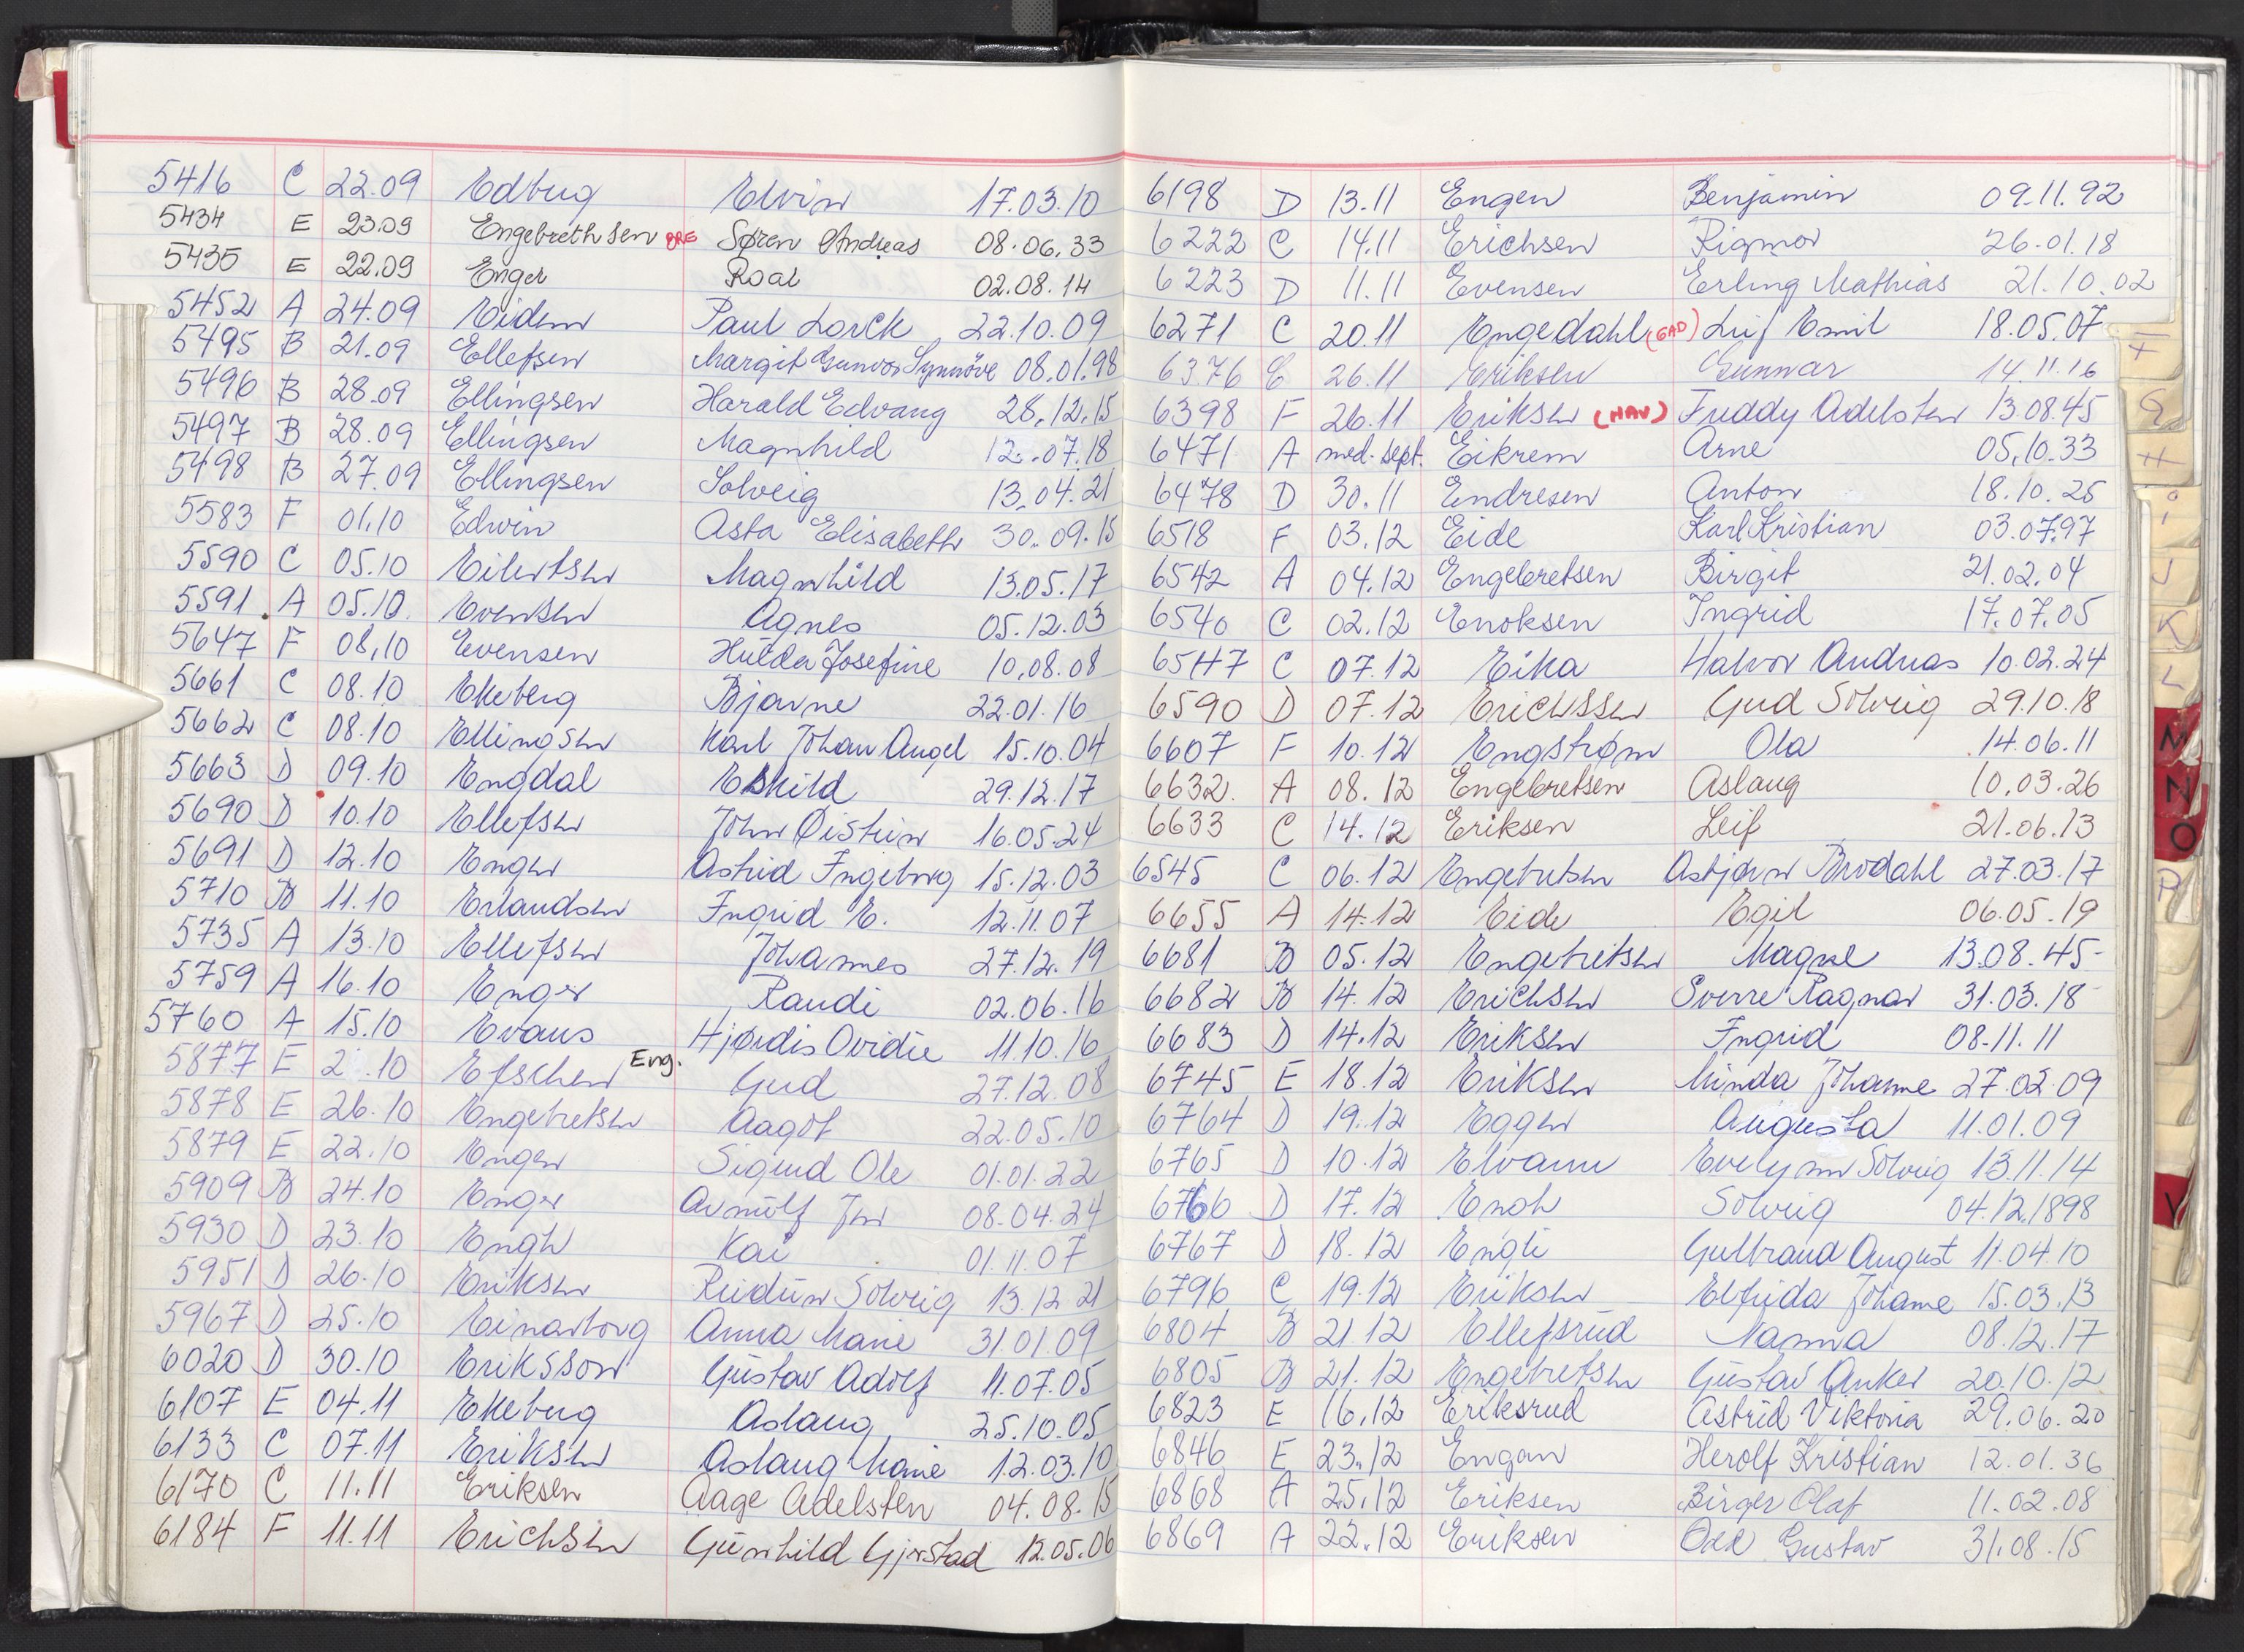 5416 C 22.09 Edberg Elvin 17.03.10
5434 E 23.09 Engebrethsen BRE Søren Andreas 08.06.33
5435 E 22.09 Enger Roal 02.08.14
5452 A 24.09 Eidem Paul Lorck 22.10.09
5495 B 21.09 Ellefsen Margit Gunvor Synnöve 08.01.98
5496 B 28.09 Ellingsen Harald Edvang 28.12.15
5497 B 28.09 Ellingsen Magnhild 12.07.18
5498 B 27.09 Ellingsen Solveig 13.04.21
5583 F 01.10 Edwin Asta Elisabeth 30.09.15
5590 C 05.10 Eilertsen Magnhild 13.05.17
5591 A 05.10. Evensen Agnes 05.12.03
5647 F 08.10 Evensen Hulda Josefine 10.08.08
5661 C 08.10 Ekeberg Bjarne 22.01.16
5662 C 08.10 Ellingsen Karl Johan Angel 15.10.04
5663 D 09.10 Engdal Eskild 29.12.17
5690 D 10.10 Ellefsen John Øistein 16.05.24
5691 D 12.10 Enger Astrid Ingeborg 15.12.03
5710 B 11.10 Erlandsen Ingrid E. 12.11.07
5735 A 13.10 Ellefsen Johannes 27.12.19
5759 A 16.10 Enger Randi 02.06.16
5760 A 15.10 Evans Hjørdis Ovidie 11.10.16
5877 E 2 .10 Efschen Eng. Gerd 27.12.08
5878 E 26.10 Engebretsen Aagot 22.05.10
5879 E 22.10 Engen Sigurd Ole 01.01.22
5909 B 24.10 Enger Arnulf Jon 08.04.24
5930 D 23.10 Engh Kai 01.11.07
5951 D 26.10 Eriksen Reidun Solveig 13.12.21
5967 D 25.10 Einarborg Anna Marie 31.01.09
6020 D 30.10 Eriksson Gustav Adolf 11.07.05
6107 E 04.11 Ekeberg Aslaug 25.10.05
6133 C 07.11 Eriksen Aslaug Marie 12.03.10
6170 C 11.11 Eriksen Aage Adelsten 04.08.15
6184 F 11.11 Erichsen Gunhild Gjerstad 12.05.06
6198 D 13.11 Engen Benjamin 09.11.92
6222 C 14.11 Erichsen Rigmor 26.01.18
6223 D 11.11 Evensen Erling Mathias 21.10.02
6271 C 20.11 Engedahl (GAD) Leif Emil 18.05.07
6376 C 26.11 Eriksen Gunnar 14.11.16
6398 F 26.11 Eriksen (NAV) Freddy Adelsten 13.08.45
6471 A med. sept. Eikrem Arne 05.10.33
6478 D 30.11 Endresen Anton 18.10.25
6518 F 03.12 Eide Karl Kristian 03.07.97
6542 A 04.12 Engebretsen Birgit 21.02.04
6540 C 02.12 Enoksen Ingrid 17.07.05
6547 C 07.12 Eika Halvor Andreas 10.02.24
6590 D 07.12 Erichssen Gerd Solveig 29.10.18
6607 F 10.12 Engstrøm Ola 14.06.11
6632. A 08.12 Engebretsen Aslaug 10.03.26
6633 C 14.12 Eriksen Leif 21.06.13
6545 C 06.12 Engebretsen Asbjørn Brodahl 27.03.17
6655 A 14.12 Eide Egil 06.05.19
6681 B 05.12 Engebretsen Magne 13.08.45
6682 B 14.12 Erichsen Sverre Ragnar 31.03.18
6683 D 14.12 Eriksen Ingrid 08.11.11
6745 E 18.12 Eriksen Minda Johanne 27.02.09
6764 D 19.12 Eggen Augusta 11.01.09
6765 D 10.12 Elvann Evelynn Solveig 13.11.14
6766 D 17.12 Enoh Solveig 04.12.1898
6767 D 18.12 Engli Gulbrand August 11.04.10
6796 C 19.12 Eriksen Elfrida Johanne 15.03.13
6804 B 21.12 Ellefsrud Nanna 08.12.17
6805 B 21.12 Engebretsen Gustav Anker 20.10.12
6823 E 16.12 Eriksrud Astrid Viktoria 29.06.20
6846 E 23.12 Engan Herolf Kristian 12.01.36
6868 A 25.12 Eriksen Birger Olaf 11.02.08
6869 A 22.12 Eriksen Odd Gustav 31.08.15
F
G
H
i
J
K
L
M
N
O
P
V